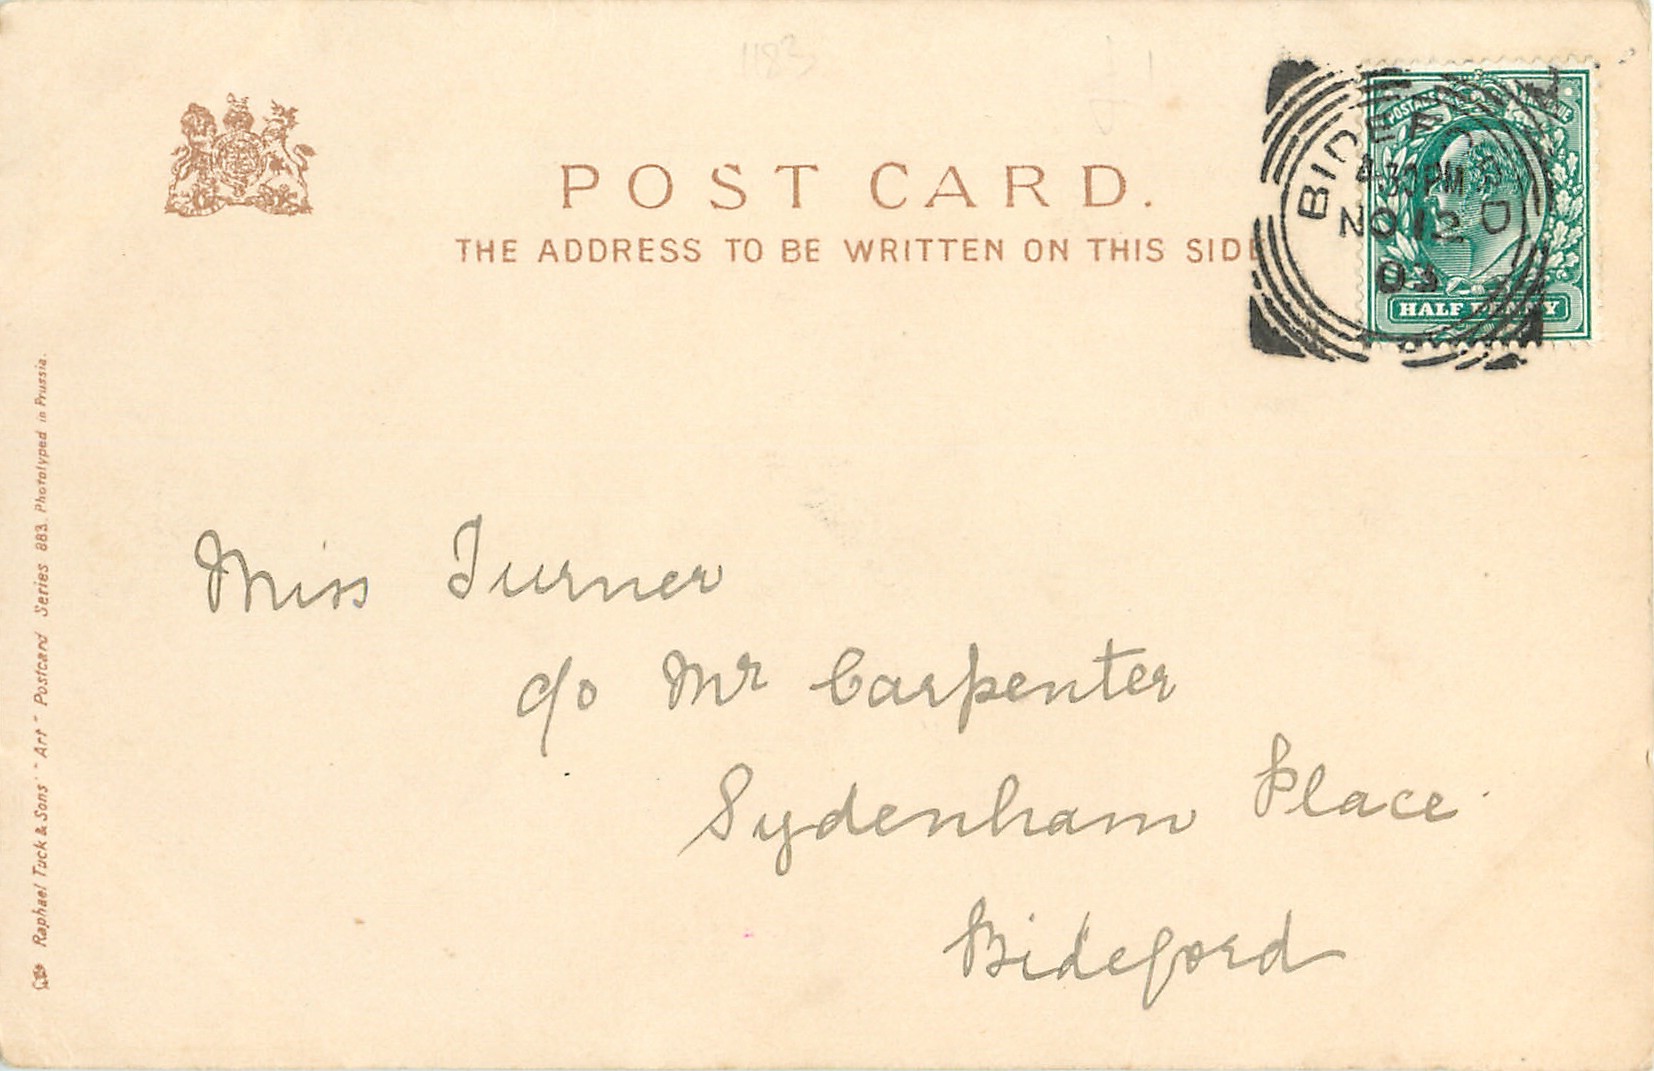 1183
£1
POST CARD.
THE ADDRESS TO BE WRITTEN ON THIS SIDE
BIDEFORD
4.30PM
NO 12
03
HALF PENNY
Miss Turner
c/o Mr Carpenter
Sydenham Place
Bideford
Raphael Tuck & Sons' "Art" Postcard Series 883. Phototyped in Prussia.